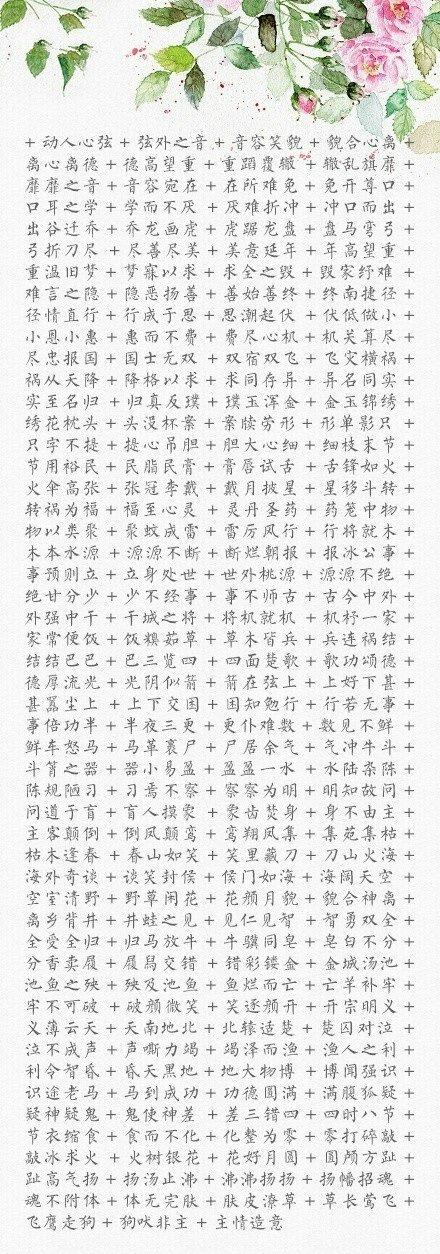 + 动人心弦 + 弦外之音 + 音容笑貌 + 貌合心离 +
离心离德 + 德高望重 + 重蹈覆辙 + 辙乱旗靡 +
靡靡之音 + 音容宛在 + 在所难免 + 免开尊口 +
口耳之学 + 学而不厌 + 厌难折冲 + 冲口而出 +
出谷迁乔 + 乔龙画虎 + 虎踞龙盘 + 盘马弯弓 +
弓折刀尽 + 尽善尽美 + 美意延年 + 年高望重 +
重温旧梦 + 梦寐以求 + 求全之毁 + 毁家纾难 +
难言之隐 + 隐恶扬善 + 善始善终 + 终南捷径 +
径情直行 + 行成于思 + 思潮起伏 + 伏低做小 +
小恩小惠 + 惠而不费 + 费尽心机 + 机关算尽 +
尽忠报国 + 国士无双 + 双宿双飞 + 飞灾横祸 +
祸从天降 + 降格以求 + 求同存异 + 异名同实 +
实至名归 + 归真反璞 + 璞玉浑金 + 金玉锦绣 +
绣花枕头 + 头没杯案 + 案牍劳形 + 形单影只 +
只字不提 + 提心吊胆 + 胆大心细 + 细枝末节 +
节用裕民 + 民脂民膏 + 膏唇试舌 + 舌锋如火 +
火伞高张 + 张冠李戴 + 戴月披星 + 星移斗转 +
转祸为福 + 福至心灵 + 灵丹圣药 + 药笼中物 +
物以类聚 + 聚蚊成雷 + 雷厉风行 + 行将就木 +
木本水源 + 源源不断 + 断烂朝报 + 报冰公事 +
事预则立 + 立身处世 + 世外桃源 + 源源不绝 +
绝甘分少 + 少不经事 + 事不师古 + 古今中外 +
外强中干 + 干城之将 + 将机就机 + 机杼一家 +
家常便饭 + 饭糗茹草 + 草木皆兵 + 兵连祸结 +
结结巴巴 + 巴三览四 + 四面楚歌 + 歌功颂德 +
德厚流光 + 光阴似箭 + 箭在弦上 + 上好下甚 +
甚嚣尘上 + 上下交困 + 困知勉行 + 行若无事 +
事倍功半 + 半夜三更 + 更仆难数 + 数见不鲜 +
鲜车怒马 + 马革裹尸 + 尸居余气 + 气冲牛斗 +
斗筲之器 + 器小易盈 + 盈盈一水 + 水陆杂陈 +
陈规陋习 + 习焉不察 + 察察为明 + 明知故问 +
问道于盲 + 盲人摸象 + 象齿焚身 + 身不由主 +
主客颠倒 + 倒凤颠鸾 + 鸾翔凤集 + 集苑集枯 +
枯木逢春 + 春山如笑 + 笑里藏刀 + 刀山火海 +
海外奇谈 + 谈笑封侯 + 侯门如海 + 海阔天空 +
空室清野 + 野草闲花 + 花颜月貌 + 貌合神离 +
离乡背井 + 井蛙之见 + 见仁见智 + 智勇双全 +
全受全归 + 归马放牛 + 牛骥同皂 + 皂白不分 +
分香卖履 + 履舄交错 + 错彩镂金 + 金城汤池 +
池鱼之殃 + 殃及池鱼 + 鱼烂而亡 + 亡羊补牢 +
牢不可破 + 破颜微笑 + 笑逐颜开 + 开宗明义 +
义薄云天 + 天南地北 + 北辕适楚 + 楚囚对泣 +
泣不成声 + 声嘶力竭 + 竭泽而渔 + 渔人之利 +
利令智昏 + 昏天黑地 + 地大物博 + 博闻强识 +
识途老马 + 马到成功 + 功德圆满 + 满腹狐疑 +
疑神疑鬼 + 鬼使神差 + 差三错四 + 四时八节 +
节衣缩食 + 食而不化 + 化整为零 + 零打碎敲 +
敲冰求火 + 火树银花 + 花好月圆 + 圆颅方趾 +
趾高气扬 + 扬汤止沸 + 沸沸扬扬 + 扬幡招魂 +
魂不附体 + 体无完肤 + 肤皮潦草 + 草长莺飞 +
飞鹰走狗 + 狗吠非主 + 主情造意